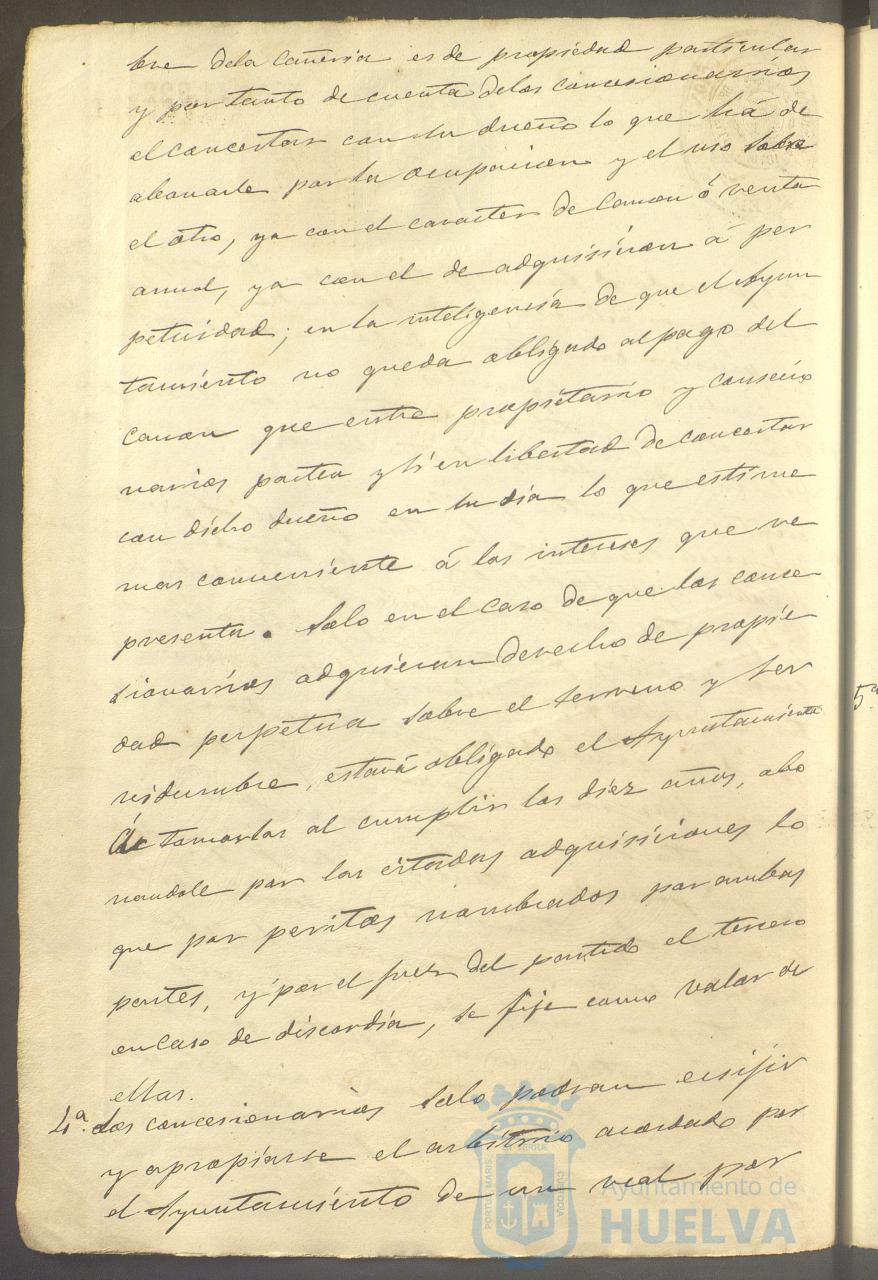 bre dela Cañeria es de propiedad particular
y por tanto de cuenta delos concesionarios
el concertar con su dueño lo que há de
abonarle por la ocupacion y el uso sobre
el otro, ya con el caracter de Canon ó renta
anual, ya con el de adquisicion á per
petuidad; en la inteligencia de que el Ayun
tamiento no queda obligado al pago del
canon que entre propietario y concecio
narios pacten y si en libertad de concertar
con dicho dueño en su dia lo que estime
mas conveniente á los intereses que re
presenta. Solo en el caso de que los conce
sionarios adquieran derecho de propie
dad perpetua sobre el terreno y ser
vidumbre, estará obligado el Ayuntamiento
á tomarlos al cumplir los diez años, abo
nandole por las citadas adquisiciones lo
que por peritos nombrados por ambas
partes, y por el juez del partido el tercero
en caso de discordia, se fije como valor de
ellas.
4ª. Los concesionarios solo podran ecsijir
y apropiarse el arbitrio acordado por
el Ayuntamiento de un real por
5ª
PORTUS MARIS
ET TERRÆ
CUSTODIA
Ayuntamiento de
HUELVA